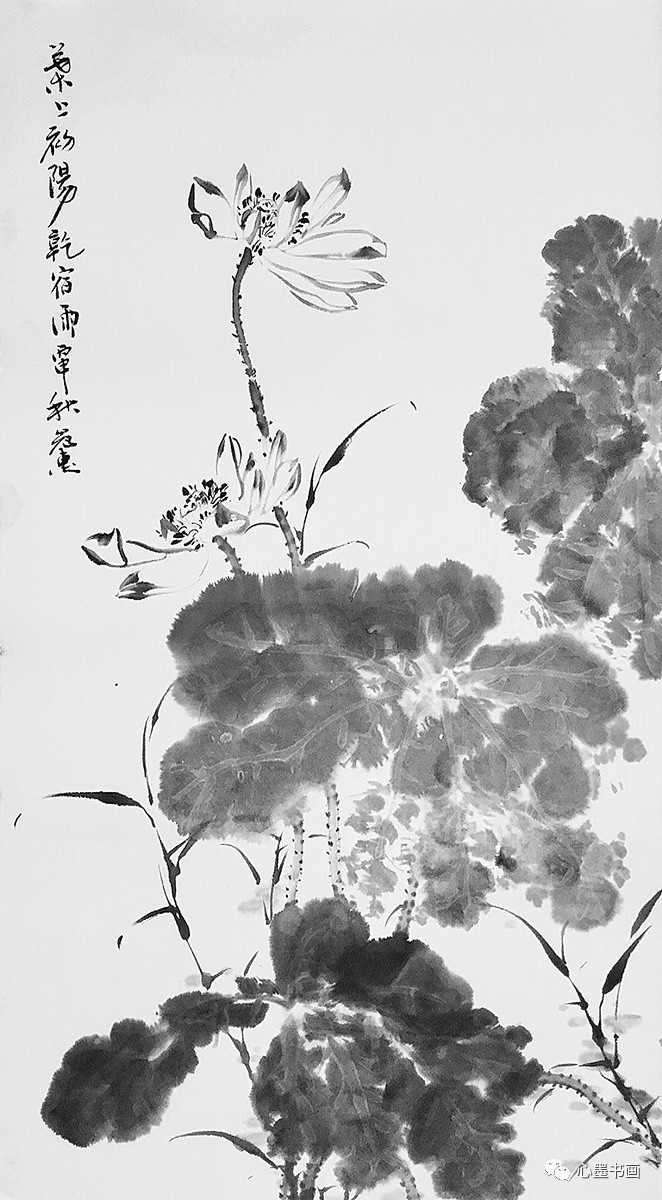 葉上初陽乾宿雨秋
心墨书画